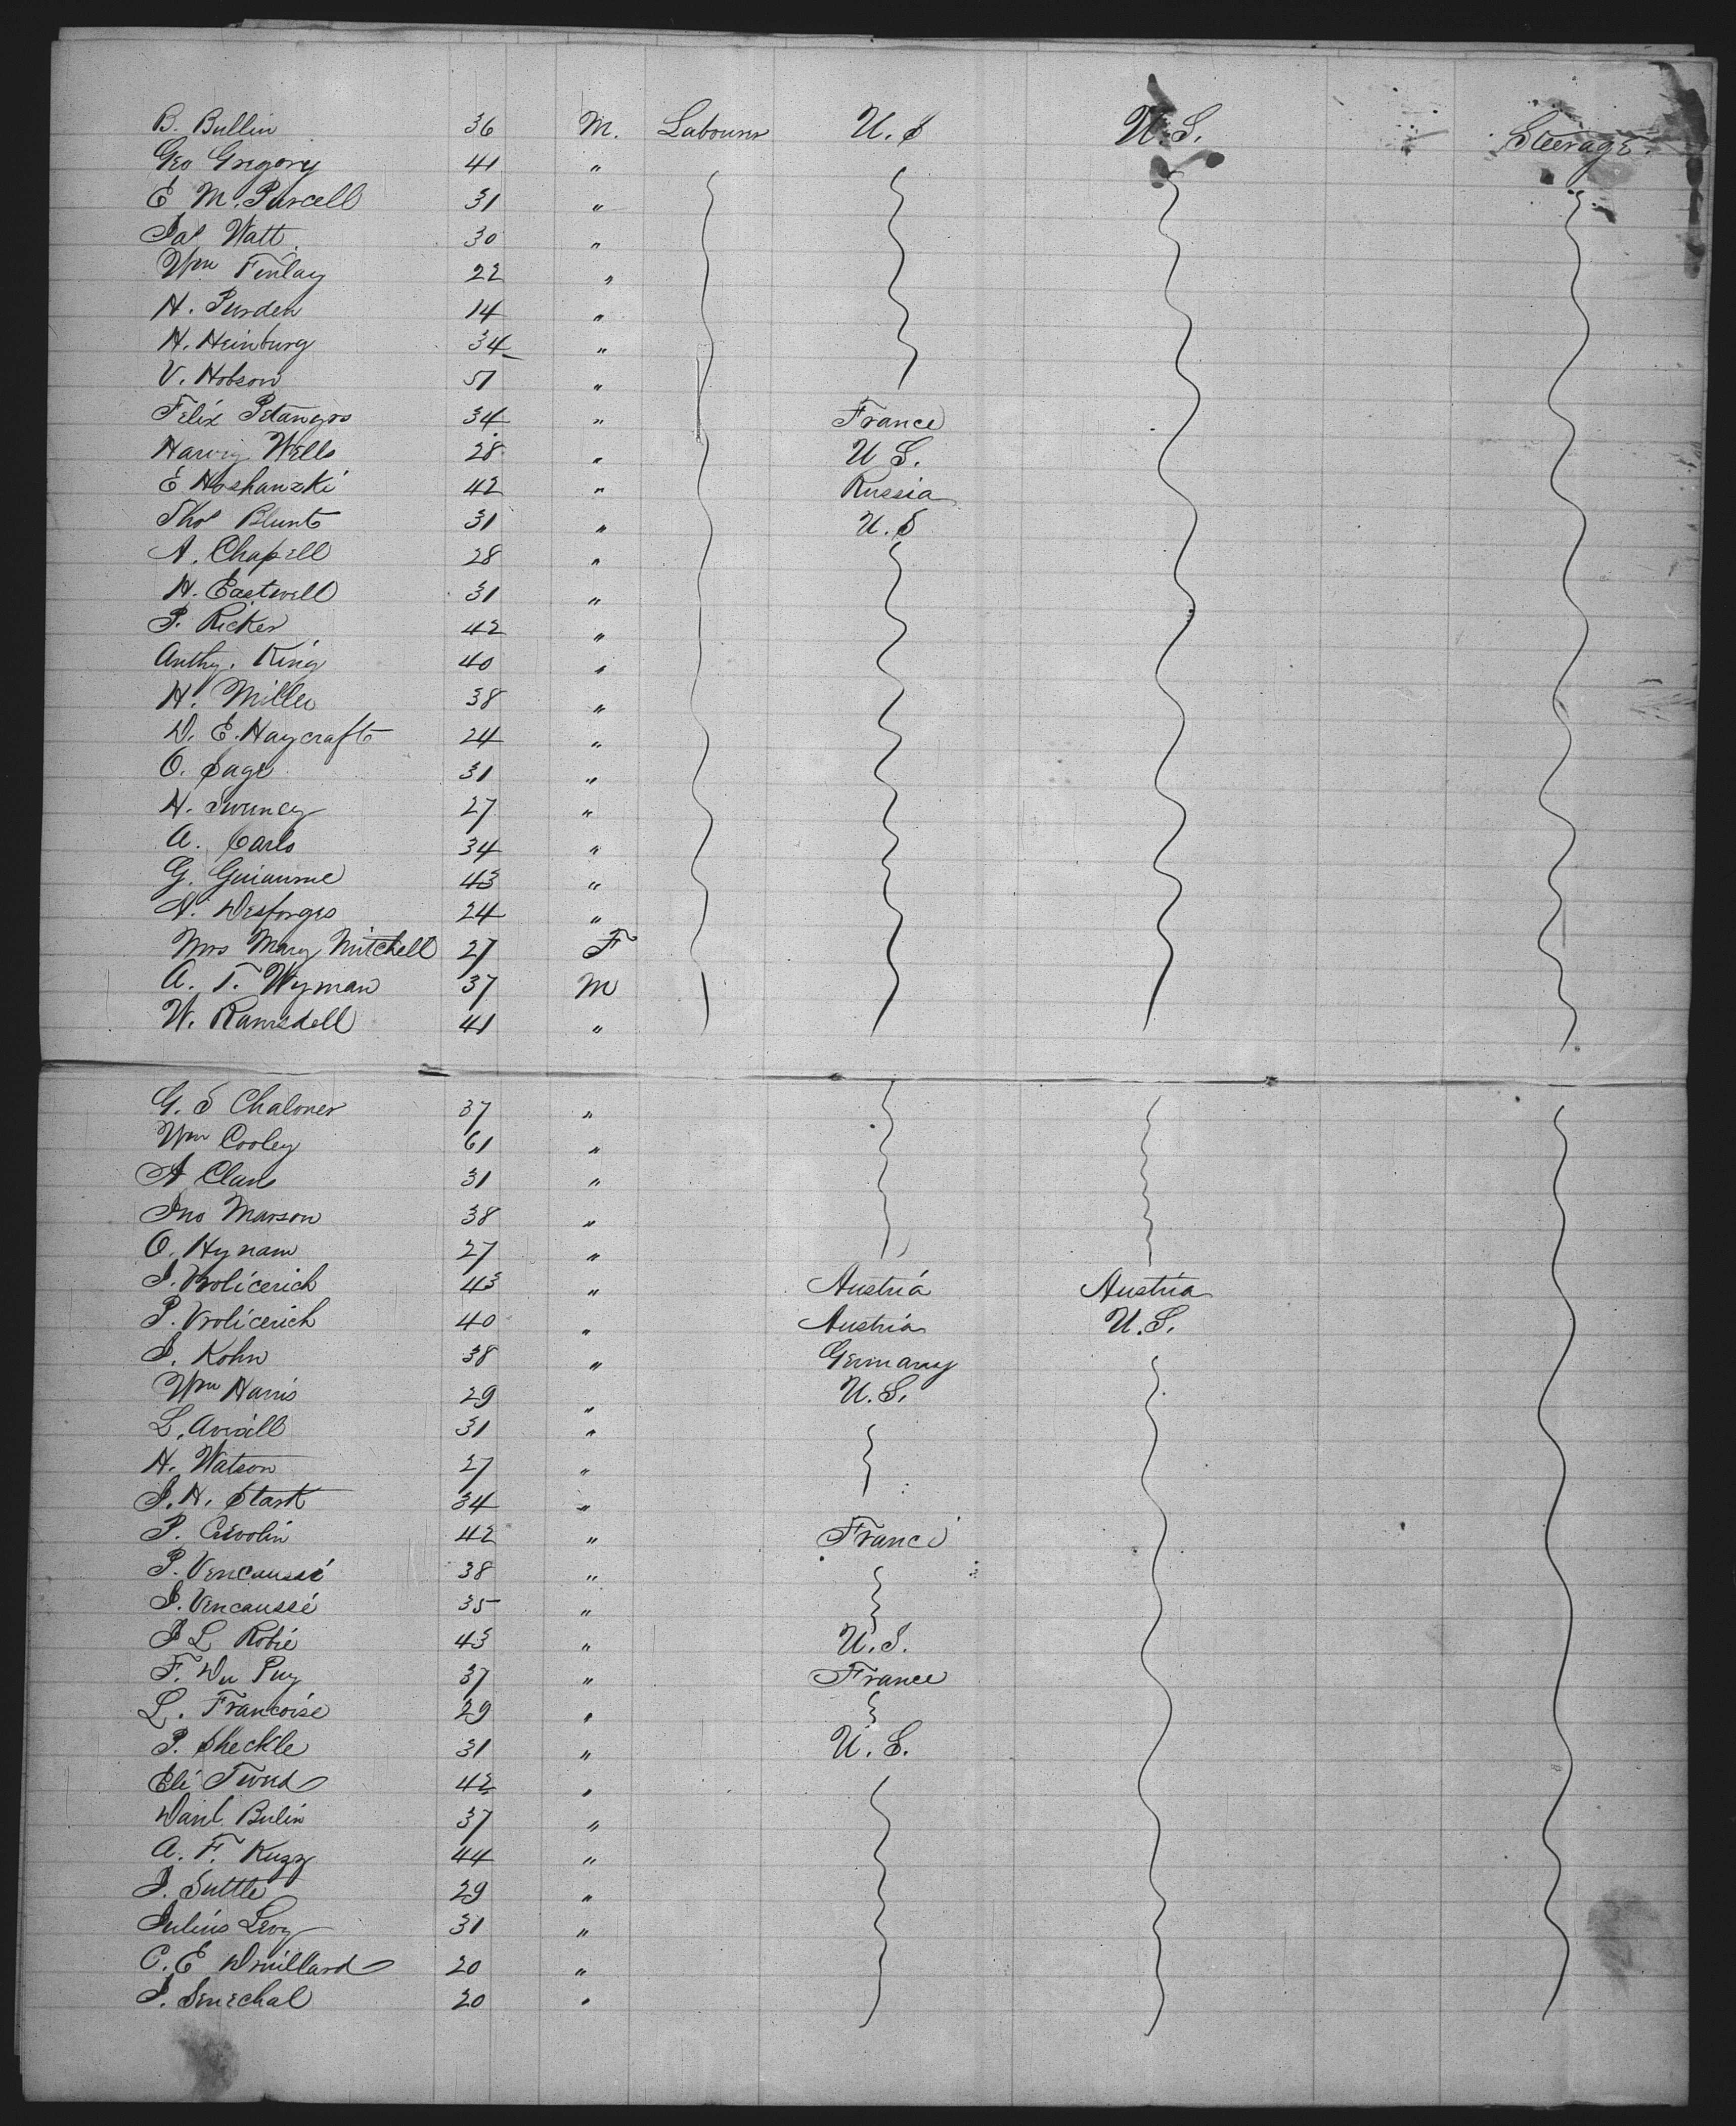 B. Bullin 36 M. Labourer U. S U.S. Steerage
Geo Gregory 41 "
E M. Purcell 31 "
Jas Watt 30 "
Wm Finlay 22 "
H. Purden 14 "
H. Heinburg 34 "
V. Hobson 51 "
Felix 34 " France
Harvey Wells 28 " U S.
E 42 " Russia
Thos Blunt 31 " U. S
A. Chapell 28 "
H. Eastwell 31 "
P. Ricker 42 "
Anthy. King 40 "
H. Miller 38 "
D. E. Haycraft 24 "
O. Sage 31 "
H. 27 "
A. Carlo 34 "
G. Guiaume 43 "
N. Desforges 24 "
Mrs Mary Mitchell 27 F
A. T. Wyman 37 M
W. Ramsdell 41 "
G. S Chaloner 37 "
Wm Cooley 61 "
A Clans 31 "
Jno Marson 38 "
O. Hynam 27 "
J. Vrolicerich 43 " Austria Austria
P. Vrolicerich 40 " Austria U.S.
J. Kohn 38 " Germany
Wm Harris 29 " U.S.
L. 31 "
H. Watson 27 "
J. H. Stark 34 "
P. Crevolin 42 " France
P. Vencaussé 38 "
J. Vencaussé 35 "
J L Robie 43 " U.S.
F. Du Puy 37 " France
L. Francoise 29 "
P. Sheckle 31 " U. S.
Eli Tweed 42 "
Danl. Bulin 37 "
A. F. Kuzz 44 "
J. Suttle 29 "
Julius Levy 31 "
C. E Druillard 20 "
J. Senechal 20 "